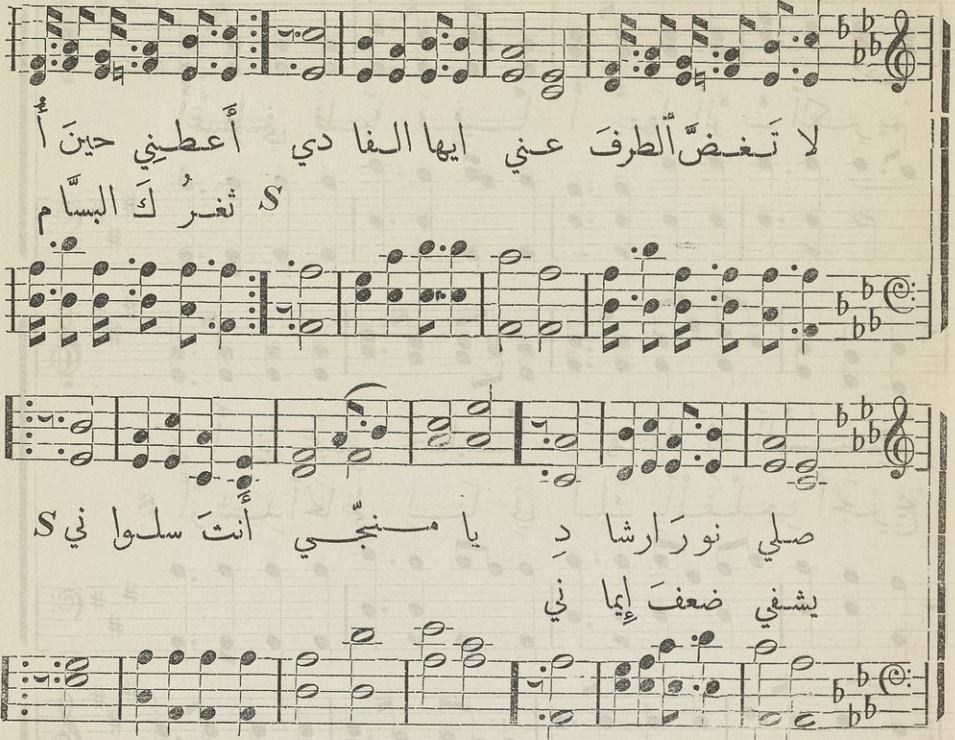 لا تَغضَّ ٱلطرفَ عني ايها الفا دي أَعطِنِي حينَ أُ
S ثغرُ كَ البسَّا م
صلي نو رَ ارشا دِ يا مسنجّي أَنتَ سلوا ني S
يشفي ضعفَ إِيما ني